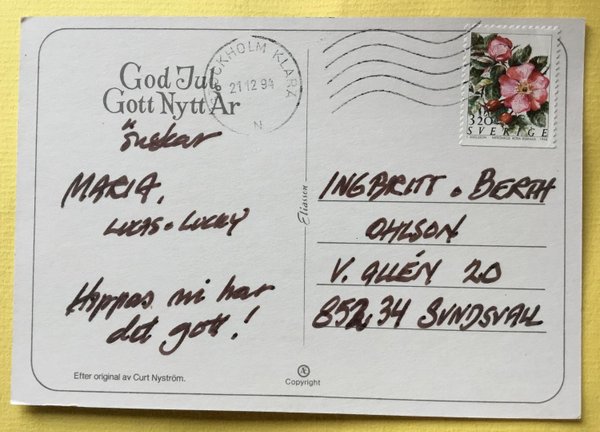 God Jul
Gott Nytt År
önskar
MARIA,
LUCAS o LUCKY
Hoppas ni har
det gott!
Efter original av Curt Nyström.
Eliasson
Copyright
STOCKHOLM KLARA
21 12 94
N
3.20
SVERIGE
INGBRITT o BERTH
OHLSON
V. ALLÉN 20
852 34 SUNDSVALL